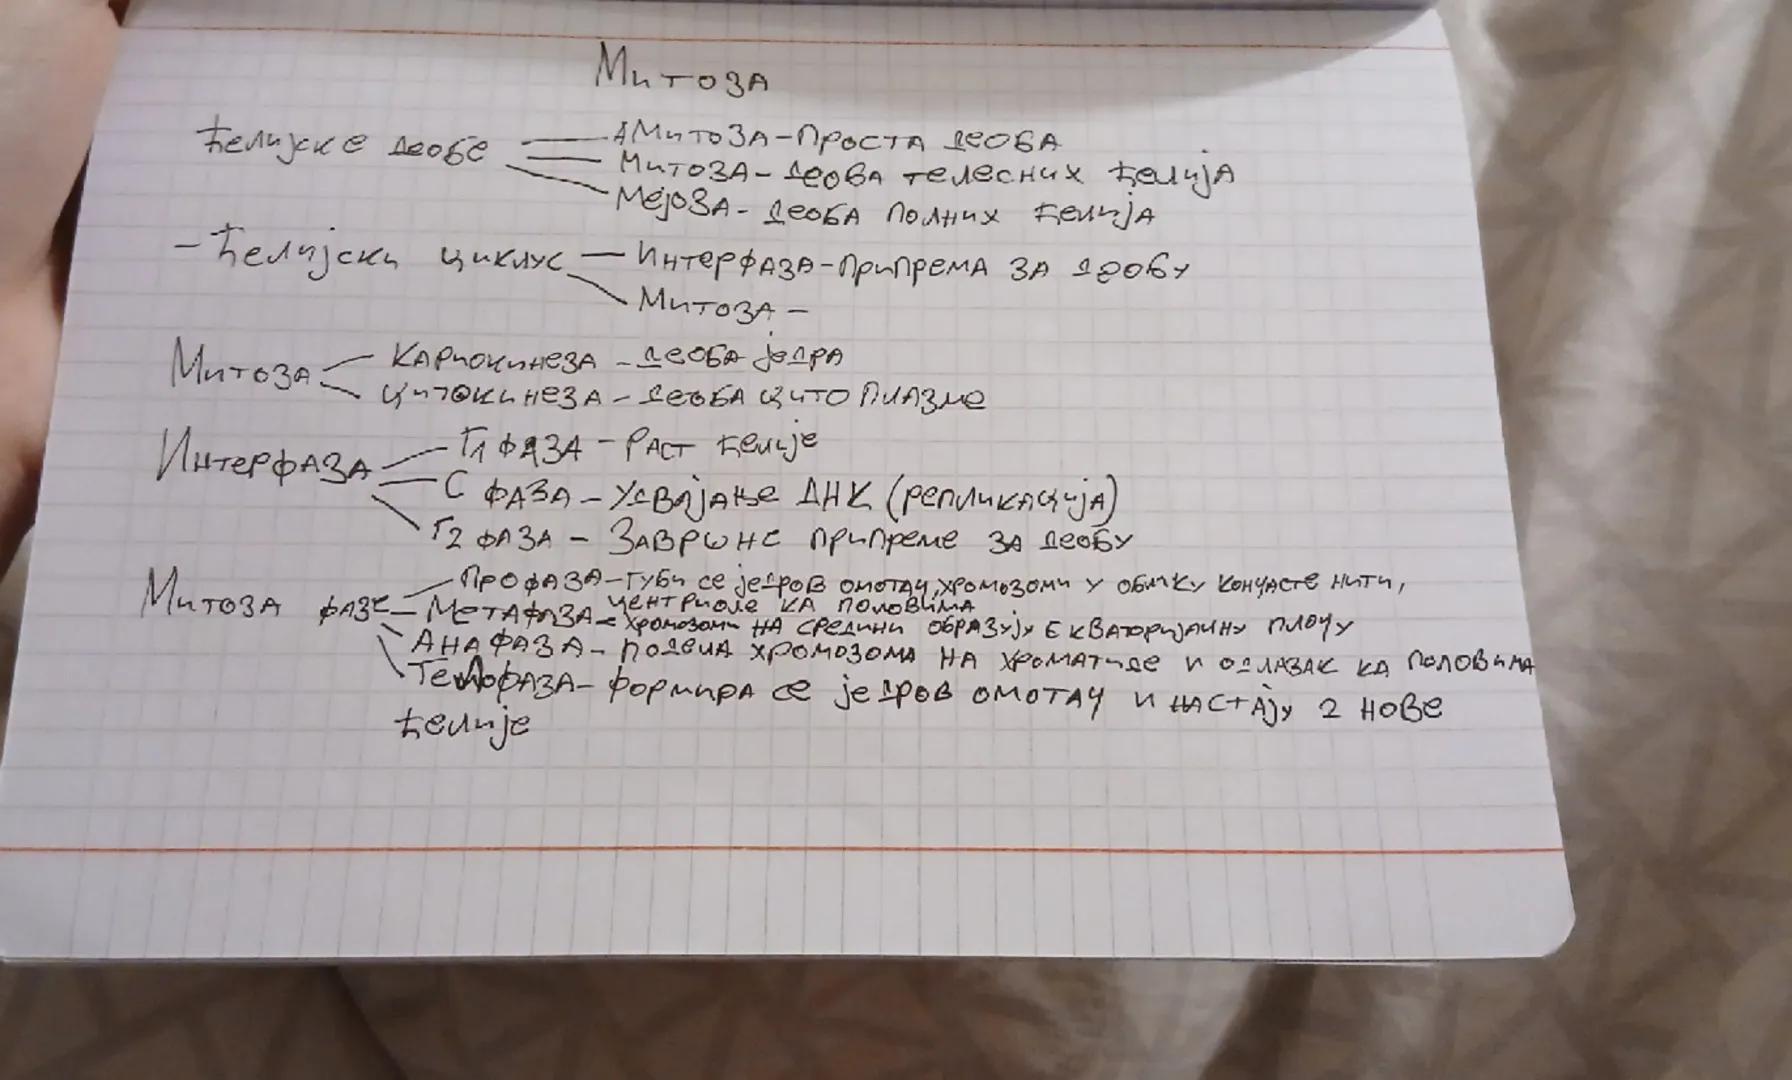 Митоза
Ћелијске деобе — Амитоза - проста деоба
Митоза - деова телесних ћелија
Мејоза - деоба полних ћелија
- Ћелијски циклус — Интерфаза - припрема за деобу
Митоза -
Митоза — Кариокинеза - деоба једра
Цитокинеза - деоба цитоплазме
Интерфаза — Г1 фаза - Раст ћелије
С фаза - Удвајање ДНК (репликација)
Г2 фаза - Завршне припреме за деобу
Митоза фазе — Профаза - губи се једров омотач, хромозоми у облику кончасте нити,
центриоле ка половима
Метафаза - хромозоми на средини образују екваторијалну плочу
Анафаза - подела хромозома на хроматиде и одлазак ка половима
Телофаза - формира се једров омотач и настају 2 нове
ћелије